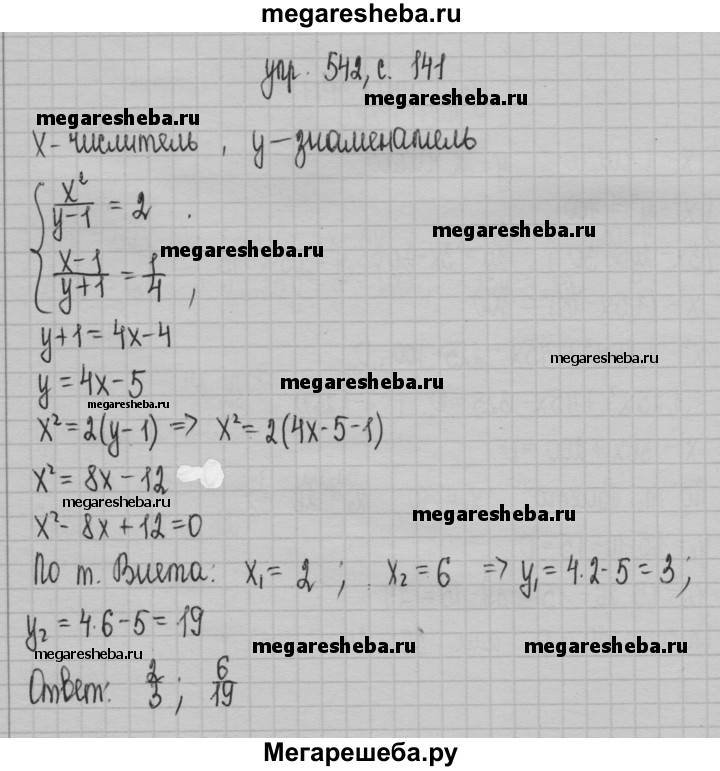 megaresheba.ru
упр. 542, с. 141
megaresheba.ru
megaresheba.ru
x - числитель, y - знаменатель
{ x²/(y-1) = 2
megaresheba.ru
megaresheba.ru
{ (x-1)/(y+1) = 1/4,
y+1 = 4x-4
megaresheba.ru
y = 4x-5
megaresheba.ru
megaresheba.ru
x² = 2(y-1) => x² = 2(4x-5-1)
x² = 8x - 12
megaresheba.ru
megaresheba.ru
x² - 8x + 12 = 0
По т. Виета: x₁ = 2 ; x₂ = 6 => y₁ = 4·2-5 = 3;
y₂ = 4·6-5 = 19
megaresheba.ru
megaresheba.ru
megaresheba.ru
Ответ: 2/3 ; 6/19
Мегарешеба.ру